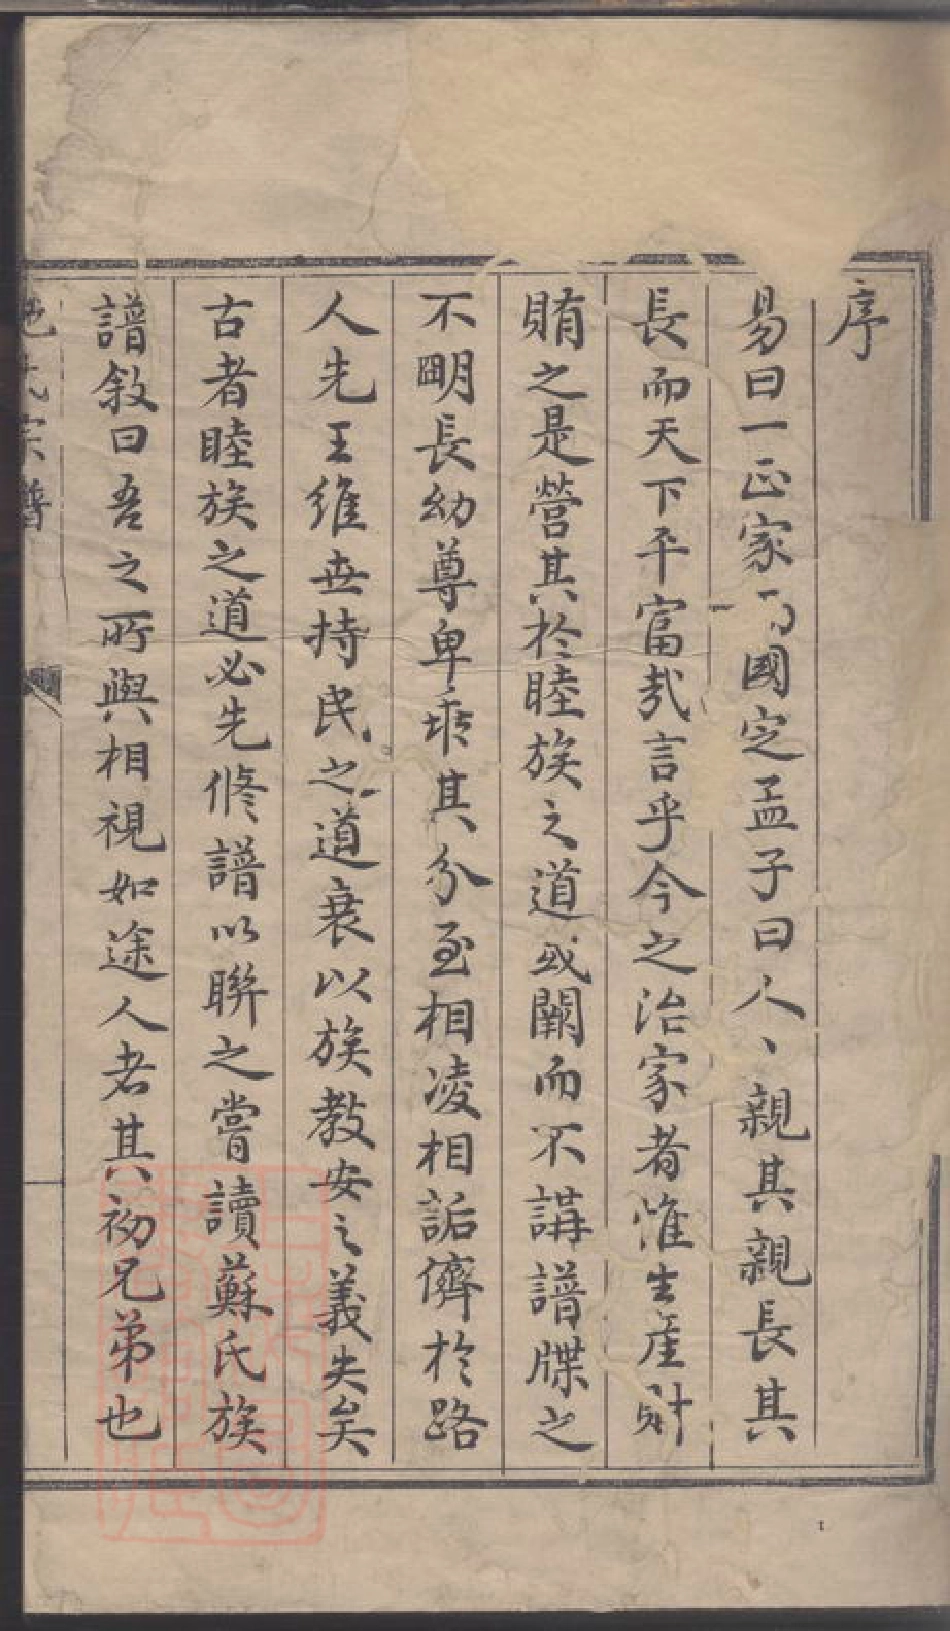 序
易曰一正家而國定孟子曰人丶親其親長其
長而天下平富哉言乎今之治家者惟生產財
賄之是營其於睦族之道或闕而不講譜牒之
不明長幼尊卑乖其分至相凌相詬儕於路
人先王維世持民之道衰以族教安之義失矣
古者睦族之道必先修譜以聯之嘗讀蘇氏族
譜敘曰吾之所與相視如途人者其初兄弟也
氏宗譜